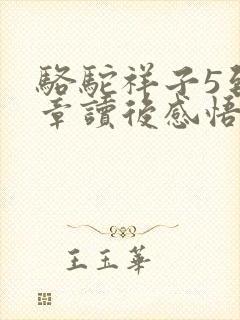 駱駝祥子5至
章讀後感悟
王玉華